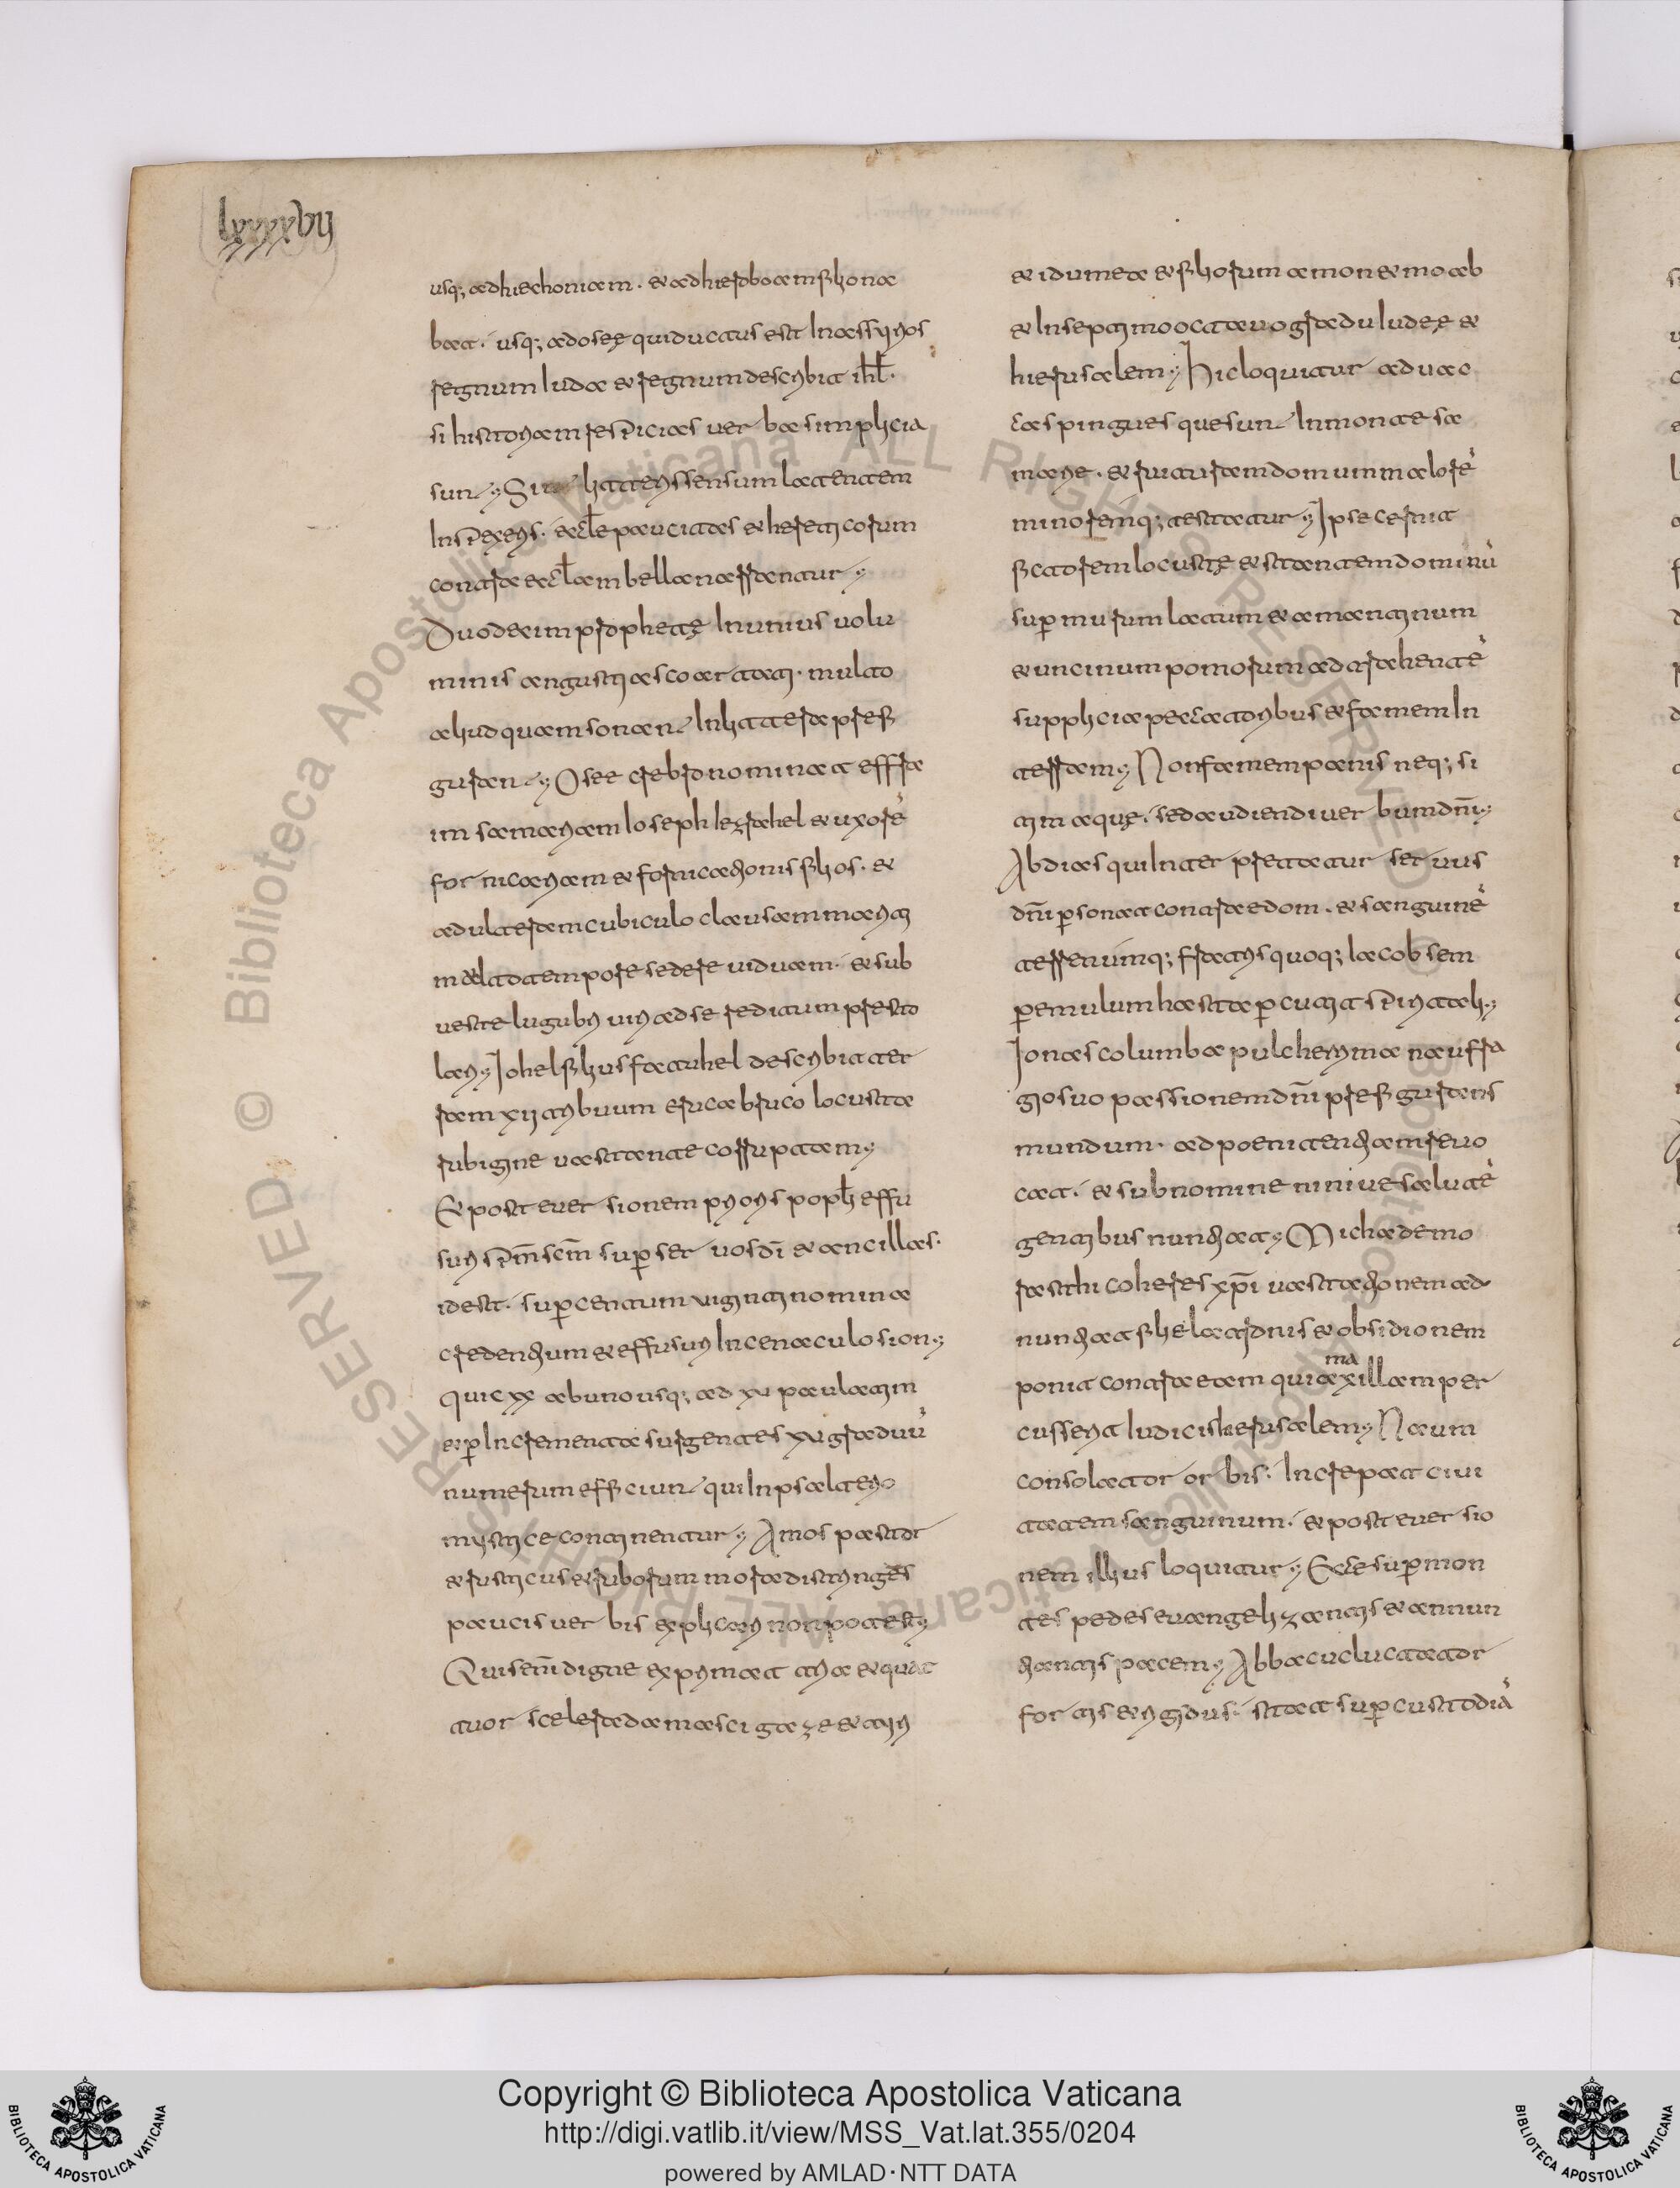 lxxxxvii
usq; adhiechoniam. et adhieroboam filio na
bat. usq; ad oseę qui ductus est In assyrios
regnum Iuda et regnum describit ihl.
si historiam respicias verba simplicia
sunt; Si litteris sensum latentem
Inspexeris. eccle paucitas et hereticorum
contra ecclam bella narrantur;
Duodecim prophetę In unius volu
minis angustias coartati. multo
aliud quam sonant In littera prefi
gurant; Osee crebro nominat effra
im samariam Ioseph Iezrahel et uxorē
fornicariam et fornicationis filios. et
adulteram cubiculo clausam mariti
multo tempore sedere viduam. et sub
veste lugubri viri ad se reditum presto
lari; Iohel filius fatuhel describit ter
ram xii tribuum eruca bruco locusta
rubigine vastante corruptam;
Et post eversionem prioris popli effu
suri spm scm sup servos di et ancillas.
idest. sup centum viginti nomina
credentium et effusuri In cenaculo sion;
qui cxx ab uno usq; ad xv paulatim
et p Incrementa surgentes xv graduū
numerum efficiunt qui In psalterio
mystice continentur; Amos pastor
et rusticus et ruborum mora distringēs
paucis verbis explicari non potest;
Quis eni digne exprimat tria et quat
tuor scelera damasci gazę et tyri
et idumeę et filiorum amon et moab
et In septimo octavo gradu Iudeę et
hierusalem; Hic loquitur ad vac
cas pingues que sunt In monte sa
marię. et ruituram domum maiorē
minoremq; testatur; Ipse cernit
fictorem locustę et stantem dominū
sup murum litum et amantinum
et uncinum pomorum ad trahentē
supplicia peccatoribus et famem In
terram; Non famem panis neq; si
tim aquę. sed audiendi verbum dni;
Abdias qui Interpretatur servus
dni p sonat contra edom. et sanguinē
terrenumq; fratris quoq; Iacob sem
p emulum hasta percutit spiritali;
Ionas columba pulcherrima naufra
gio suo passionem dni prefigurans
mundum. ad poenitentiam revo
cat. et sub nomine ninive salutē
gentibus nuntiat; Michȩas demo
rasthi coheres xpi vastationem ad
nuntiat filię latronis et obsidionem
ponit contra eam quia maxillam per
cusserit Iudicis Ierusalem; Naum
consolator orbis. Increpat civi
tatem sanguinum. et post eversio
nem illius loquitur; Ecce sup mon
tes pedes evangelizantis et annun
tiantis pacem; Abbacuc luctator
fortis et rigidus. stat sup custodiā